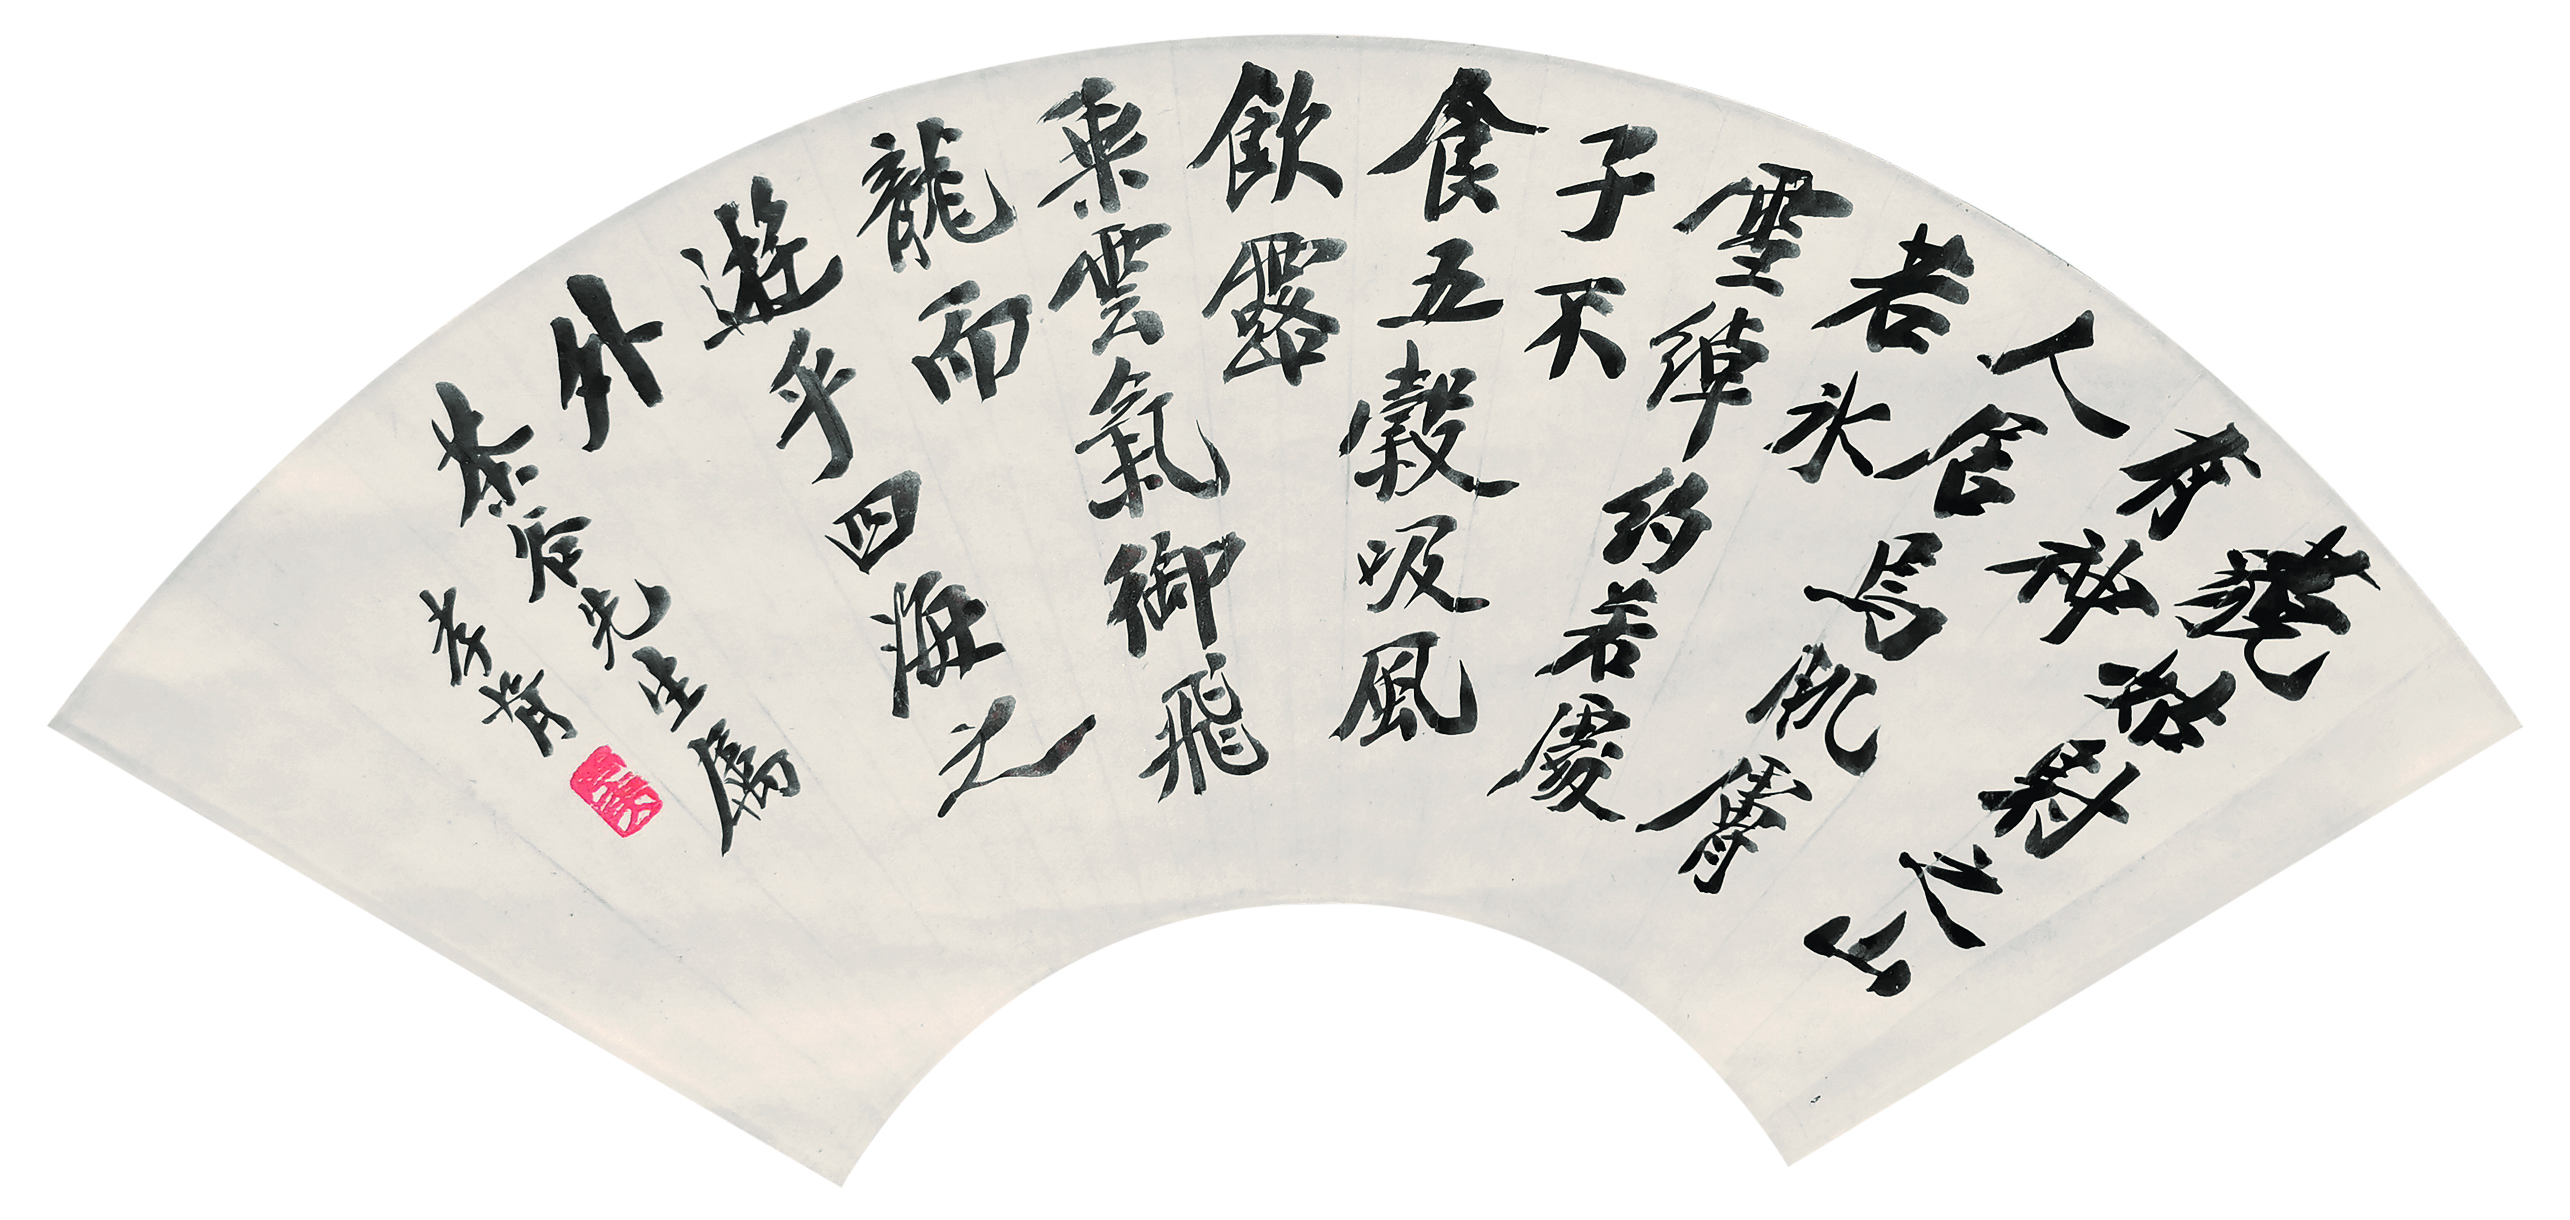 藐姑射之山
有神
人居焉肌膚
若氷
雪綽約若處
子不
食五穀吸風
飲露
乘雲氣御飛
龍而
遊乎四海之
外
茶谷先生屬
孝胥